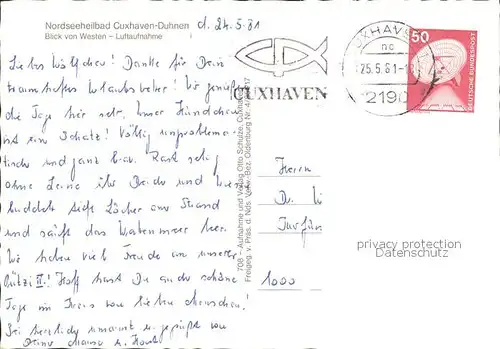 Nordseeheilbad Cuxhaven-Duhnen
Blick von Westen – Luftaufnahme
d. 24.5.81
Liebes Wölfchen! Danke für Dein
traumhaftes Urlaubswetter! Wir genießen
die Tage hier sehr. Unser Hündchen
ist ein Schatz! Völlig unproblema-
tisch und ganz brav. Rast selig
ohne Leine über Deiche und Wiesen
buddelt sich Löcher am Strand
und säuft das Wattenmeer leer.
Wir haben viel Freude an unserer
II! Hoff hast Du auch schöne
Tage im Kreis von lieben Menschen!
Sei herzlich umarmt u. gegrüßt von
Deiner u. Horst
708 – Aufnahme und Verlag Otto Schulze, Cuxhaven
Freigeg. v. Präs. d. Nds. Verw.-Bez. Oldenburg Nr.
CUXHAVEN
CUXHAVEN
nc
25.5.81-1
2190
50
DEUTSCHE BUNDESPOST
Herrn
Dr.
1000
privacy protection
Datenschutz